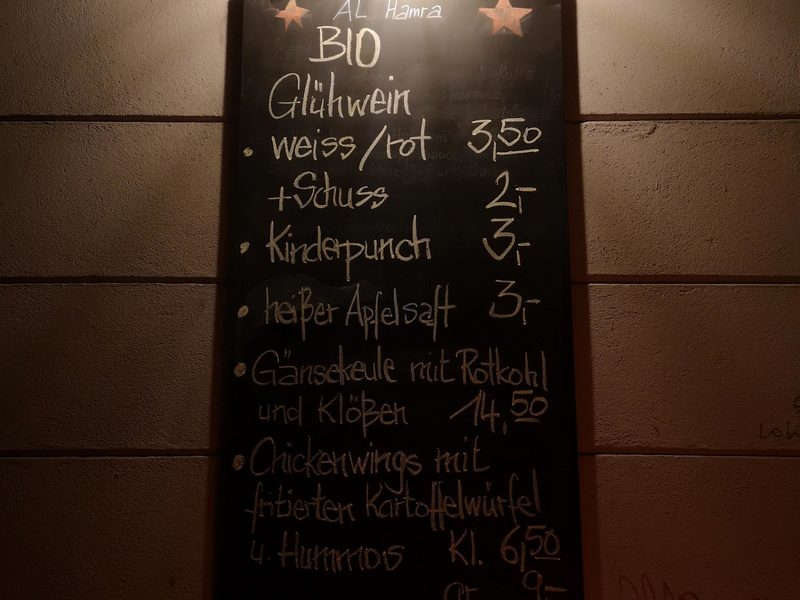 AL Hamra
BIO
Glühwein
• weiss/rot 3,50
+Schuss 2,-
• Kinderpunch 3,-
• heißer Apfelsaft 3,-
• Gänsekeule mit Rotkohl
und Klößen 14,50
• Chickenwings mit
fritierten Kartoffelwürfel
u. Hummos Kl. 6,50
Gr. 9,-